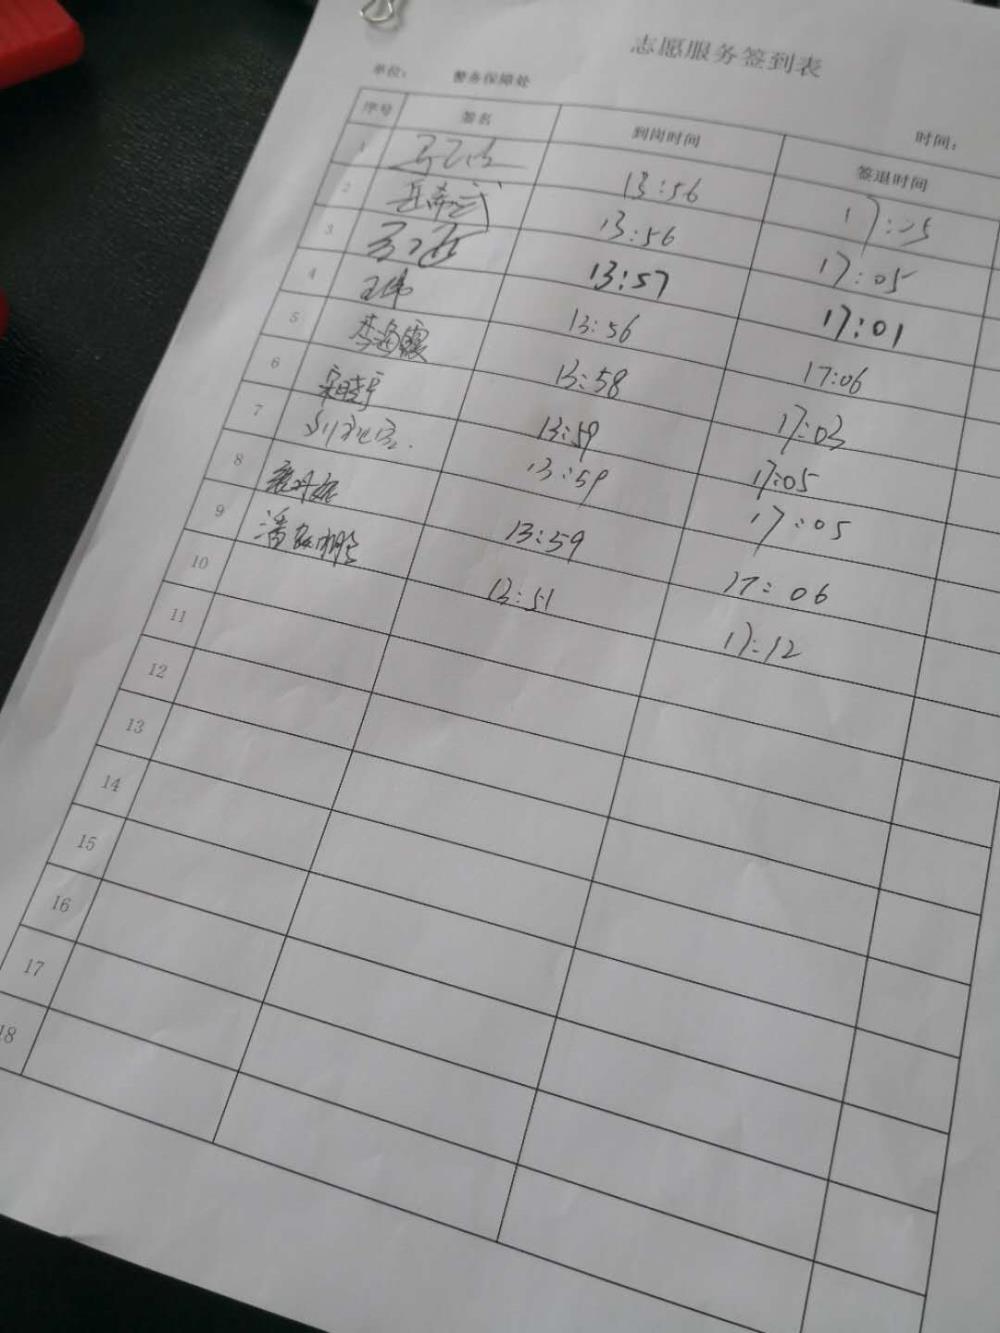 志愿服务签到表
单位： 警务保障处 时间：
序号 签名 到岗时间 签退时间
1 13:56
2 13:56 17:05
3 13:57 17:01
4 王伟 13:56 17:06
5 李海霞 13:58 17:03
6 13:59 17:05
7 13:59 17:05
8 13:59 17:06
9 潘 13:51 17:12
10
11
12
13
14
15
16
17
18